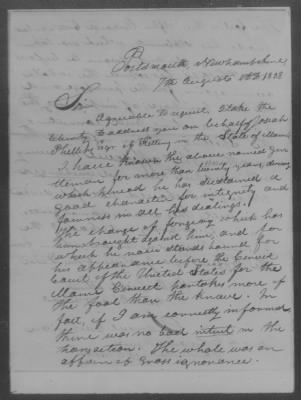 Portsmouth, Newhampshire
7th August
Sir
Agreeable to request, I take the
liberty to address you on behalf of Josiah
of Kittery in the State of Maine
I have known the above named gen
tleman for more than twenty years, during
which period he has sustained a
good character for integrity and
fairness in all his dealings.
The charge of forgery which has
been brought against him, and for
which he now stands bound for
his appearance before the Circuit
Court of the United States for the
Maine Circuit partakes more of
the fool than the knave. In
fact, if I am correctly informed
there was no bad intent in the
transaction. The whole was an
affair of gross ignorance.